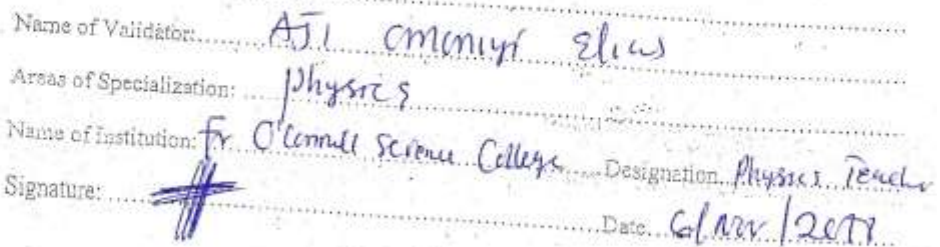 Name of Validator: AJI Omoniyi Elias
Areas of Specialization: Physics
Name of Institution: Fr O'Connell Science College Designation Physics Teacher
Signature:
Date 6/Nov/